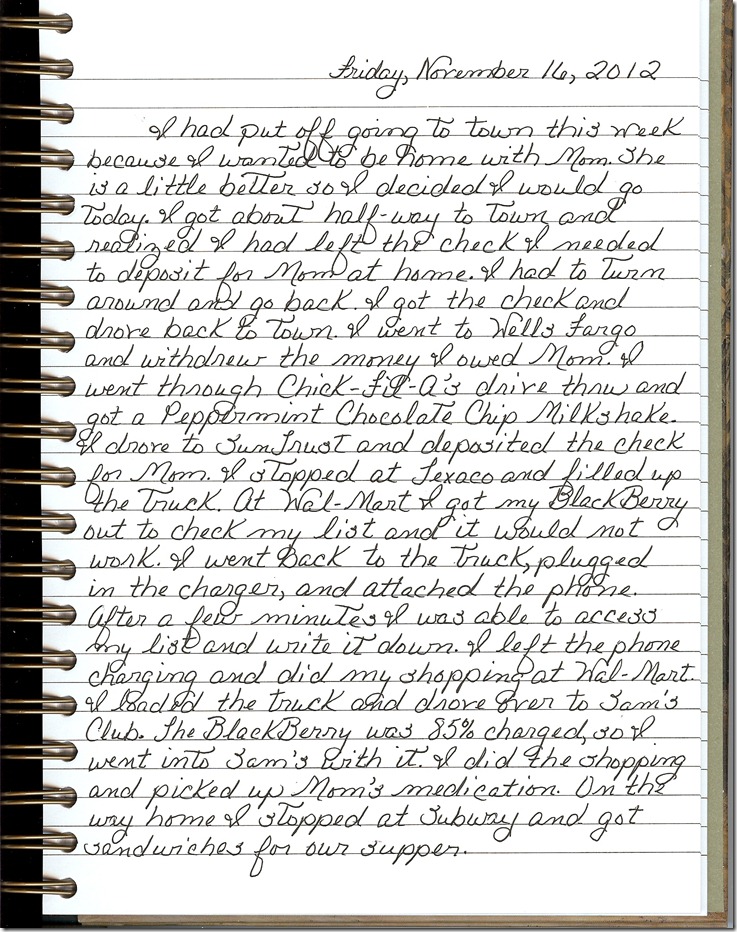 Friday, November 16, 2012
I had put off going to town this week
because I wanted to be home with Mom. She
is a little better so I decided I would go
today. I got about half-way to town and
realized I had left the check I needed
to deposit for Mom at home. I had to turn
around and go back. I got the check and
drove back to town. I went to Wells Fargo
and withdrew the money I owed Mom. I
went through Chick-fil-A's drive thru and
got a Peppermint Chocolate Chip Milkshake.
I drove to SunTrust and deposited the check
for Mom. I stopped at Texaco and filled up
the truck. At Wal-Mart I got my BlackBerry
out to check my list and it would not
work. I went back to the truck, plugged
in the charger, and attached the phone.
After a few minutes I was able to access
my list and write it down. I left the phone
charging and did my shopping at Wal-Mart.
I loaded the truck and drove over to Sam's
Club. The BlackBerry was 85% charged, so I
went into Sam's with it. I did the shopping
and picked up Mom's medication. On the
way home I stopped at Subway and got
sandwiches for our supper.